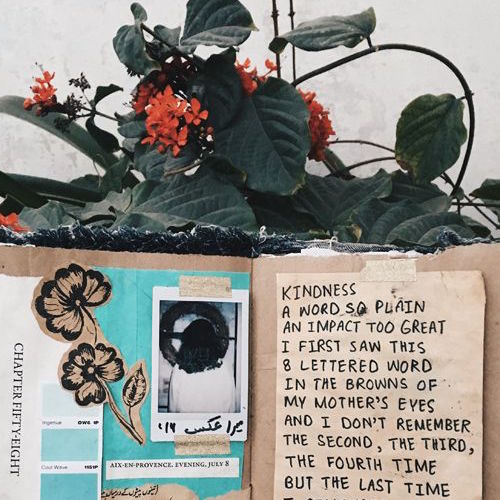 CHAPTER FIFTY-EIGHT
Ingenue OW6 1P
Cool Wave 11S1P
میرا عکس '19
AIX-EN-PROVENCE. EVENING, JULY 8
KINDNESS
A WORD SO PLAIN
AN IMPACT TOO GREAT
I FIRST SAW THIS
8 LETTERED WORD
IN THE BROWNS OF
MY MOTHER'S EYES
AND I DON'T REMEMBER
THE SECOND, THE THIRD,
THE FOURTH TIME
BUT THE LAST TIME